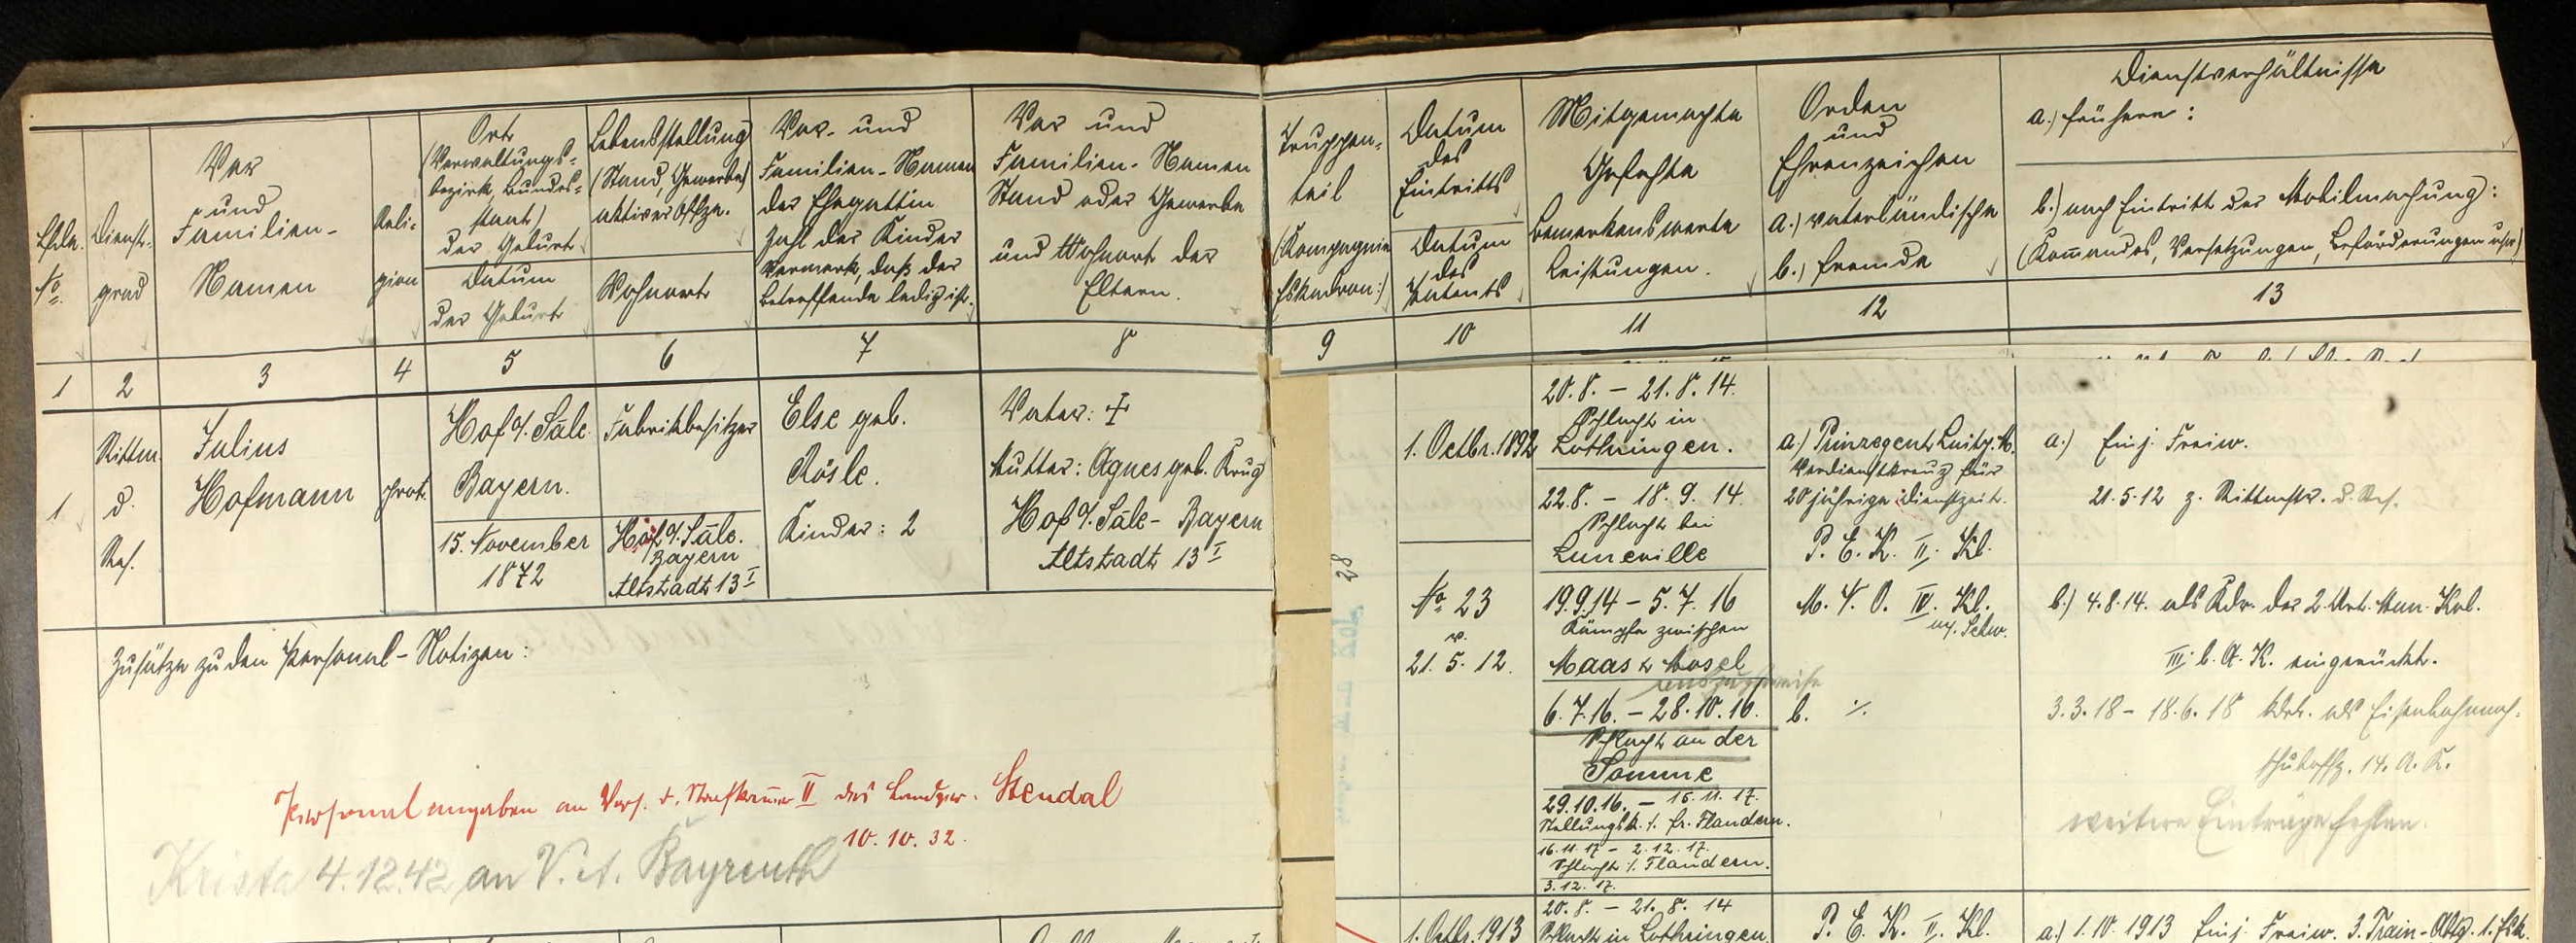 Lfde. No.
Dienst-
grad
Vor
und
Familien-
Namen
Reli-
gion
Ort
(Verwaltungs-
bezirk, Bundes-
staat)
der Geburt
Datum
der Geburt
Lebensstellung
(Stand, Gewerbe)
aktiver Offze.
Wohnort
Vor- und
Familien-Namen
der Ehegattin
Zahl der Kinder
Vermerk, daß der
betreffende ledig ist.
Vor und
Familien-Namen
Stand oder Gewerbe
und Wohnort der
Eltern.
Truppen-
teil
(Kompagnie
Eskadron:)
Datum
des
Eintritts
Datum
des
Patents
Mitgemachte
Gefechte
Bemerkenswerte
Leistungen.
Orden
und
Ehrenzeichen
a.) vaterländische
b.) fremde
Dienstverhältnisse
a.) frühere:
b.) nach Eintritt der Mobilmachung:
(Komandos, Versetzungen, Beförderungen usw)
1 2 3 4 5 6 7 8 9 10 11 12 13
1
Rittm.
d.
Res.
Julius
Hofmann
prot.
Hof a/. Sale
Bayern.
15. November
1872
Fabrikbesitzer
Hof a/. Sale.
Bayern
Altstadt 13 I
Else geb.
Rösle.
Kinder: 2
Vater: †
Mutter: Agnes geb. Krug
Hof a/. Sale - Bayern
Altstadt 13 I
28
1. Octbr. 1892
No 23
v.
21. 5. 12.
20. 8. - 21. 8. 14.
Schlacht in
Lothringen.
22. 8. - 18. 9. 14.
Schlacht bei
Luneville
19. 9. 14 - 5. 7. 16
Kämpfe zwischen
Maas & Mosel
auszugsweise
6. 7. 16. - 28. 10. 16.
Schlacht an der
Somme
29. 10. 16. - 15. 11. 17.
Stellungsk. i. fr. Flandern.
16. 11. 17 - 2. 12. 17.
Schlacht i. Flandern.
3. 12. 17.
a.) Prinzregent Luitp. M.
Verdienstkreuz für
20 jährige Dienstzeit.
P. E. K. II. Kl.
M. V. O. IV. Kl.
m. Schw.
b. ./.
a.) Einj. Freiw.
21. 5. 12 z. Rittmstr. d. Res.
b.) 4. 8. 14. als Kdr. der 2. Art. Mun. Kol.
III. b. A. K. eingerückt.
3. 3. 18 - 18. 6. 18 kdrt. als Eisenbahnnach-
schuboffz. 14. A. K.
weitere Einträge fehlen.
Zusätze zu den Personal-Notizen:
Personalangaben an Vors. d. Strafkammer II des Landger. Stendal
10. 10. 32.
Krista 4. 12. 42 an V. A. Bayreuth
1. Octbr. 1913
20. 8. - 21. 8. 14
Schlacht in Lothringen
P. E. K. II. Kl.
a.) 1. 10. 1913 Einj. Freiw. 3. Train-Abtg. 1. Esk.